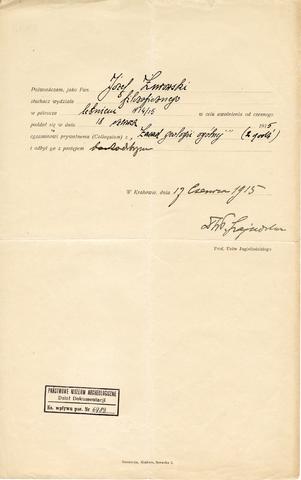 Poświadczam, jako Pan Józef Żurowski
słuchacz wydziału filozoficznego
w półroczu letniem 1914/15 w celu uwolnienia od czesnego
poddał się w dniu 18 czerwca 1915
egzaminowi prywatnemu (Colloquium) z „Zasad geologii ogólnej" (2 godz)
i odbył go z postępem bardzo dobrym
W Krakowie, dnia 17 Czerwca 1915
Prof. Uniw. Jagiellońskiego
PAŃSTWOWE MUZEUM ARCHEOLOGICZNE
Dział Dokumentacji
Ks. wpływu poz. Nr